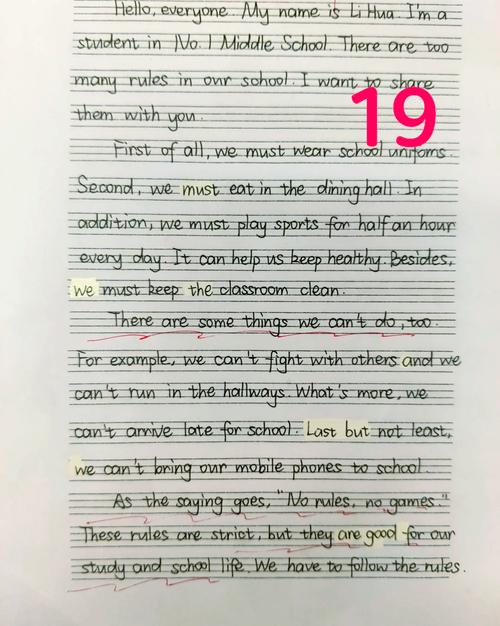 Hello, everyone. My name is Li Hua. I'm a
student in No. 1 Middle School. There are too
many rules in our school. I want to share
19
them with you.
First of all, we must wear school unifoms.
Second, we must eat in the dining hall. In
addition, we must play sports for half an hour
every day. It can help us keep healthy. Besides,
we must keep the classroom clean.
There are some things we can't do, too.
For example, we can't fight with others and we
can't run in the hallways. What's more, we
can't arrive late for school. Last but not least,
we can't bring our mobile phones to school.
As the saying goes, "No rules, no games."
These rules are strict, but they are good for our
study and school life. We have to follow the rules.